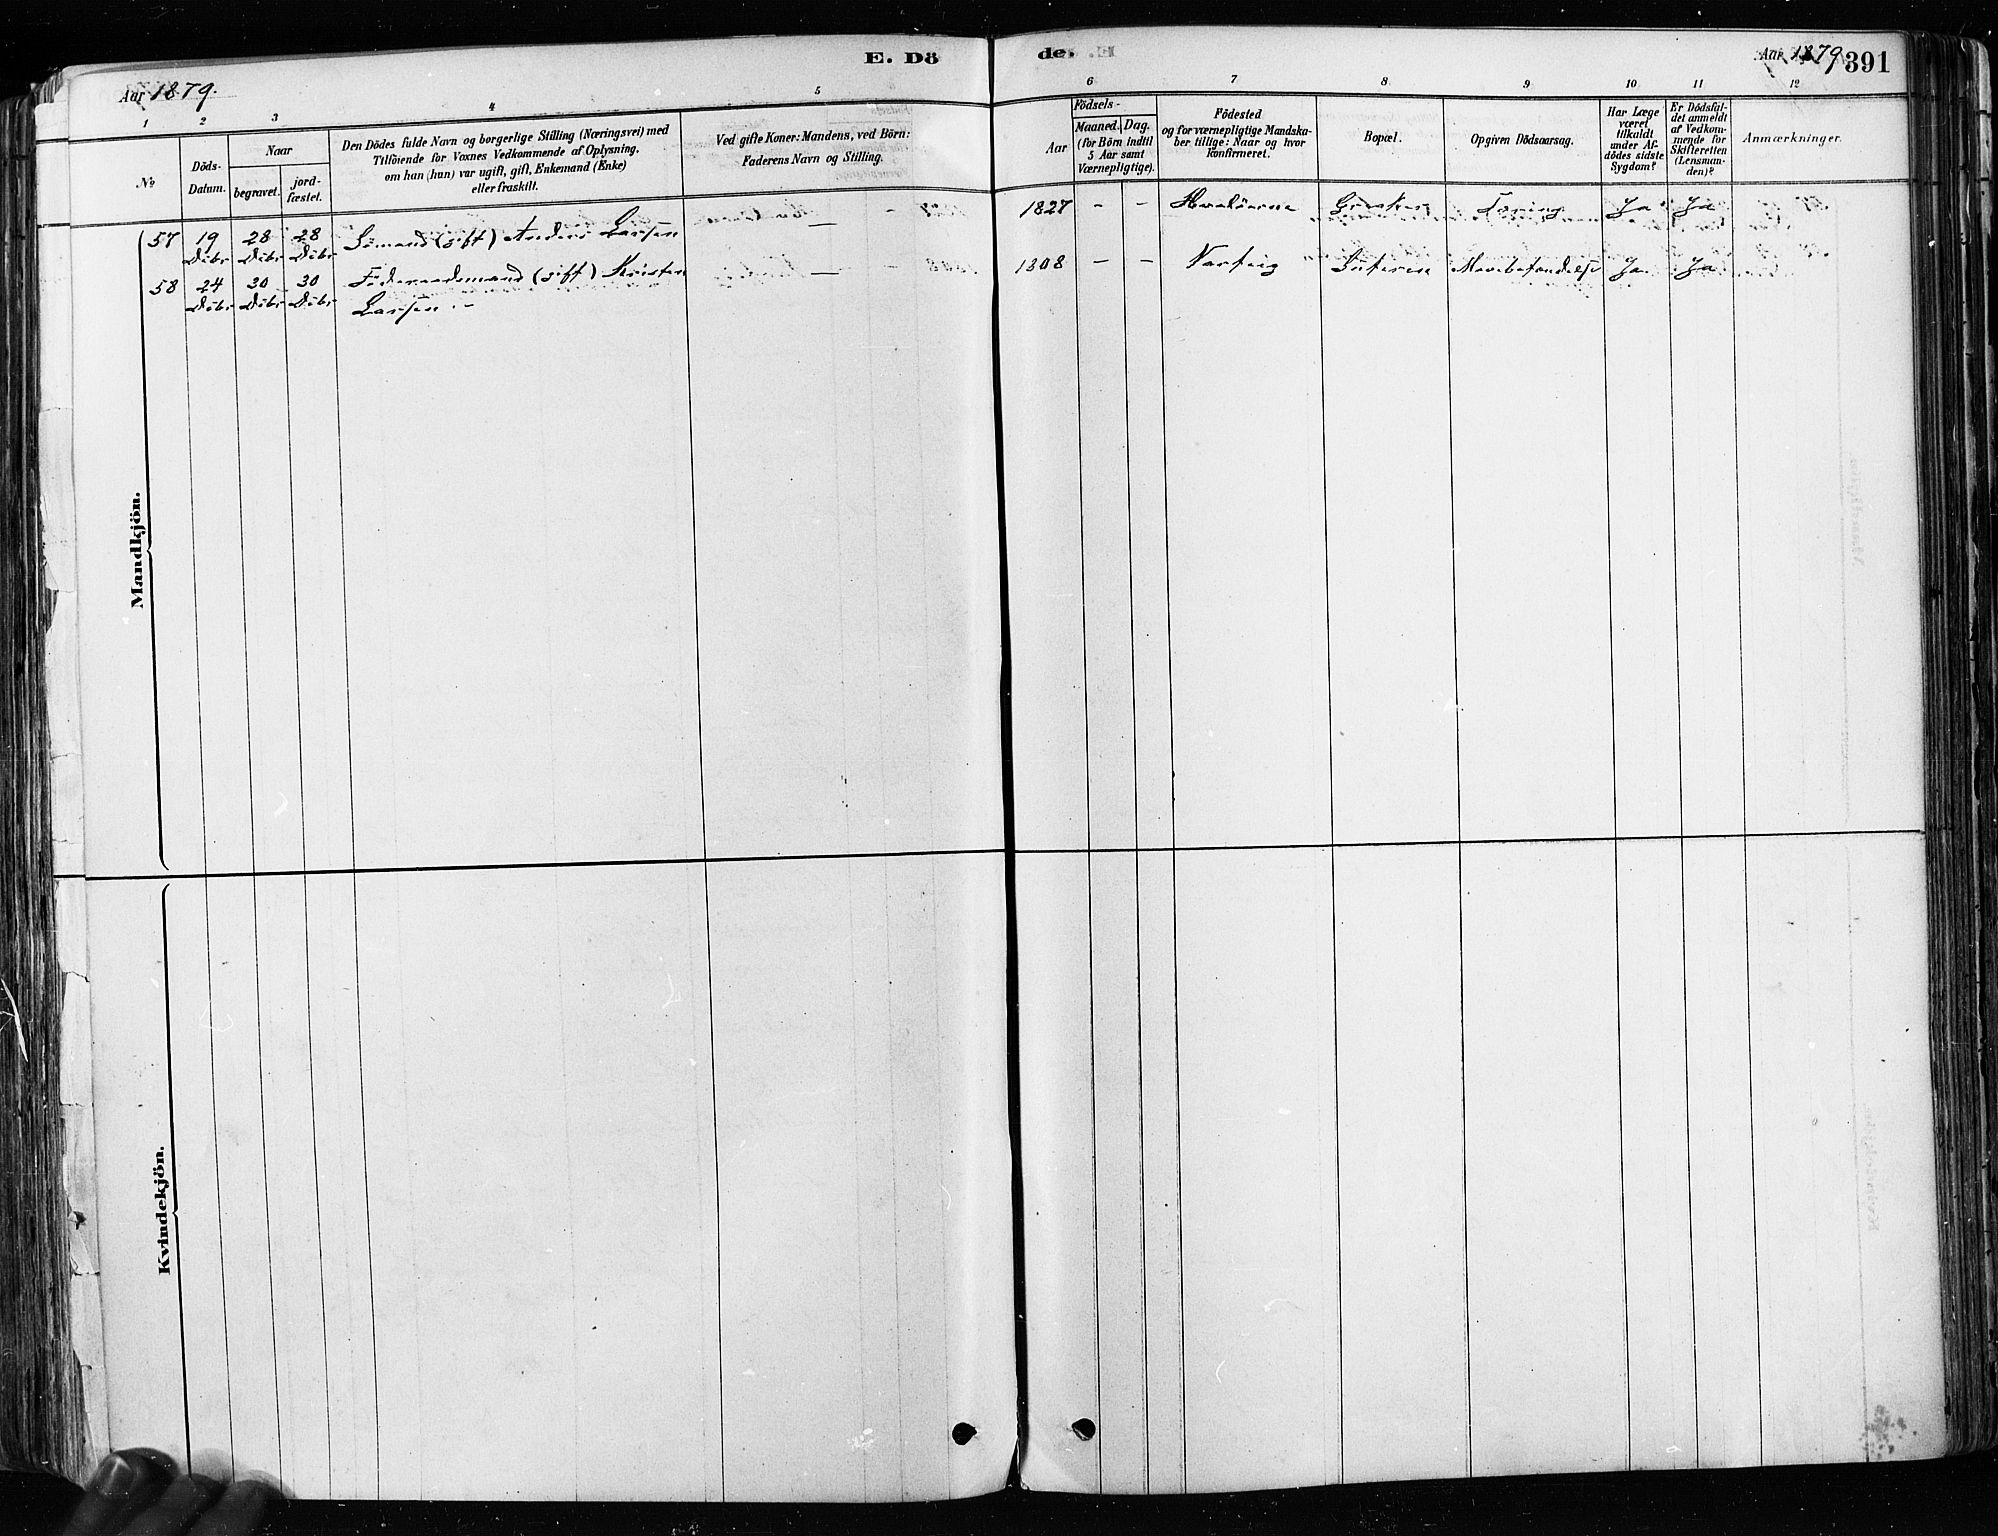 E. Döde.
Aar 1879.
Aar 1879 391
1 2 3 4 5 6 7 8 9 10 11 12
№
Döds-Datum.
Naar
begravet.
jordfæstet.
Den Dödes fulde Navn og borgerlige Stilling (Næringsvei) med
Tilföiende for Voxnes Vedkommende af Oplysning,
om han (hun) var ugift, gift, Enkemand (Enke)
eller fraskilt.
Ved gifte Koner: Mandens, ved Börn:
Faderens Navn og Stilling.
Födsels-
Aar
Maaned. Dag.
(for Börn indtil
5 Aar samt
Værnepligtige).
Födested
og for værnepligtige Mandska-
ber tillige: Naar og hvor
konfirmeret.
Bopæl.
Opgiven Dödsaarsag.
Har Læge
været
tilkaldt
under Af-
dödes sidste
Sygdom?
Er Dödsfal-
det anmeldt
af Vedkom-
mende for
Skifteretten
(Lensman-
den)?
Anmærkninger.
Mandkjön.
57 19 Debr 28 Debr 28 Debr Sömand (gift) Anders Larsen — 1827 – – Hvaløerne Greaker Tæring Ja Ja
58 24 Debr 30 Debr 30 Debr Föderaadsmand (gift) Kristen — 1808 – – Varteig Mavebetændelse Ja Ja
Larsen.
Kvindekjön.